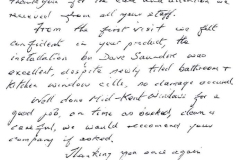 thankyou for the care and attention we
received from all your staff.
From the first visit we felt
confident in your product, the
installation by Dave Saunders was
excellent, despite newly tiled bathroom +
kitchen window cills, no damage occured
Well done Mid-Kent Windows for a
good job, on time as quoted, clean &
careful, we would recommend your
company if asked.
Thanking you once again